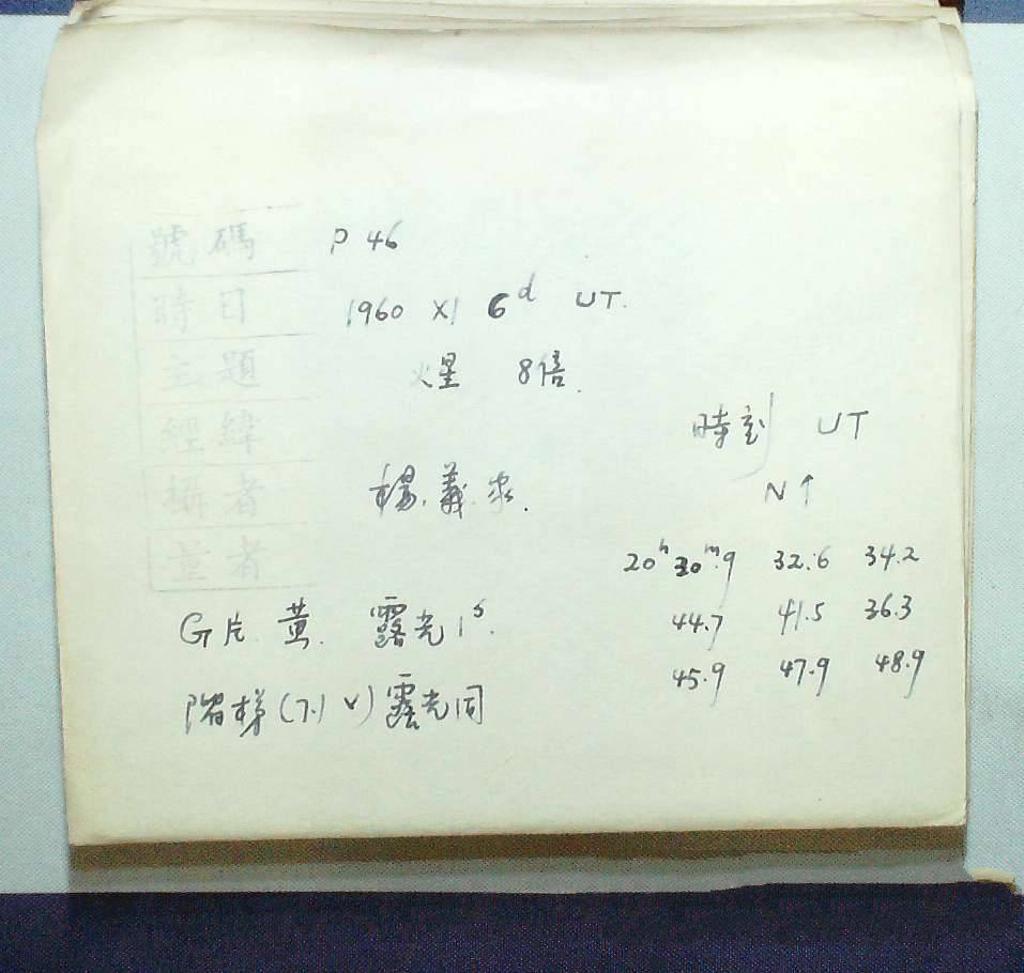 號碼 P 46
時日 1960 XI 6d UT.
主題 火星 8倍.
經緯
攝者 楊.義.求.
量者
時刻 UT
N↑
20h30m.9 32.6 34.2
44.7 41.5 36.3
45.9 47.9 48.9
G片. 黃. 露光1s.
階梯(7.1 V)露光同